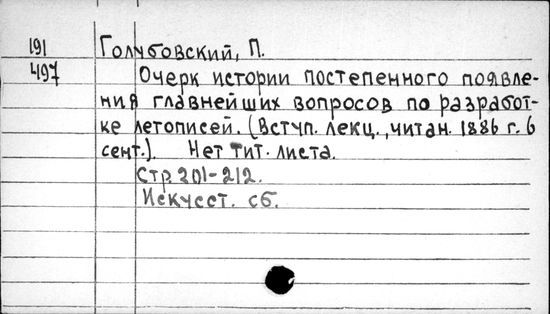 191 Голубовский, П.
497 Очерк истории постепенного появле-
ния главнейших вопросов по разработ-
ке летописей. (Вступ. лекц., читан. 1886 г. 6
сент.). Нет тит. листа.
Стр. 201-212.
Искусст. сб.